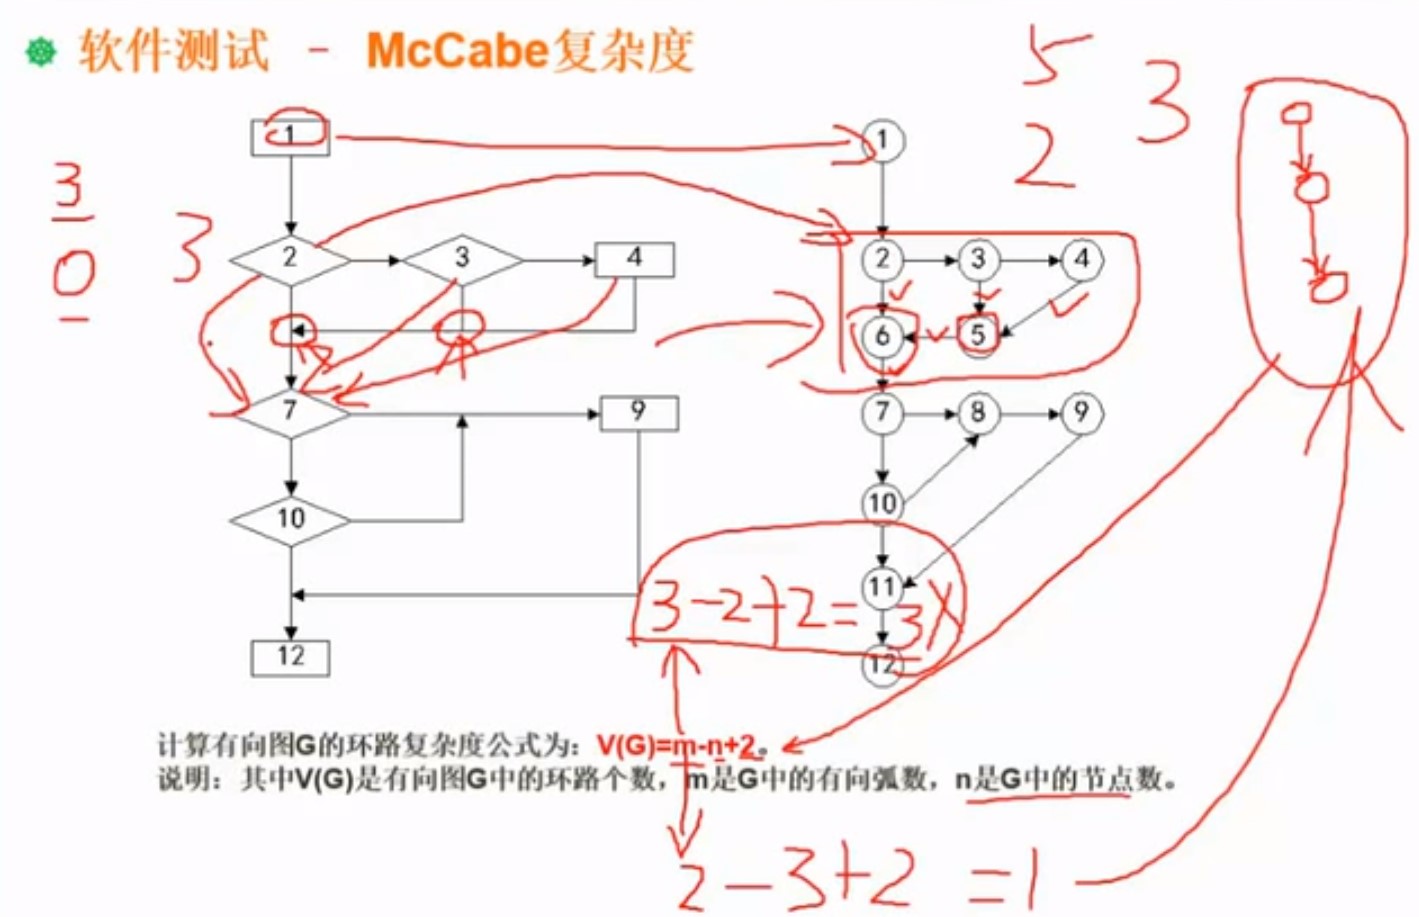 软件测试 - McCabe复杂度
5
3
2
3
0
3
1
2
3
4
7
9
10
12
1
2
3
4
6
5
7
8
9
10
11
12
3-2+2=3
计算有向图G的环路复杂度公式为：V(G)=m-n+2。
说明：其中V(G)是有向图G中的环路个数，m是G中的有向弧数，n是G中的节点数。
2-3+2=1